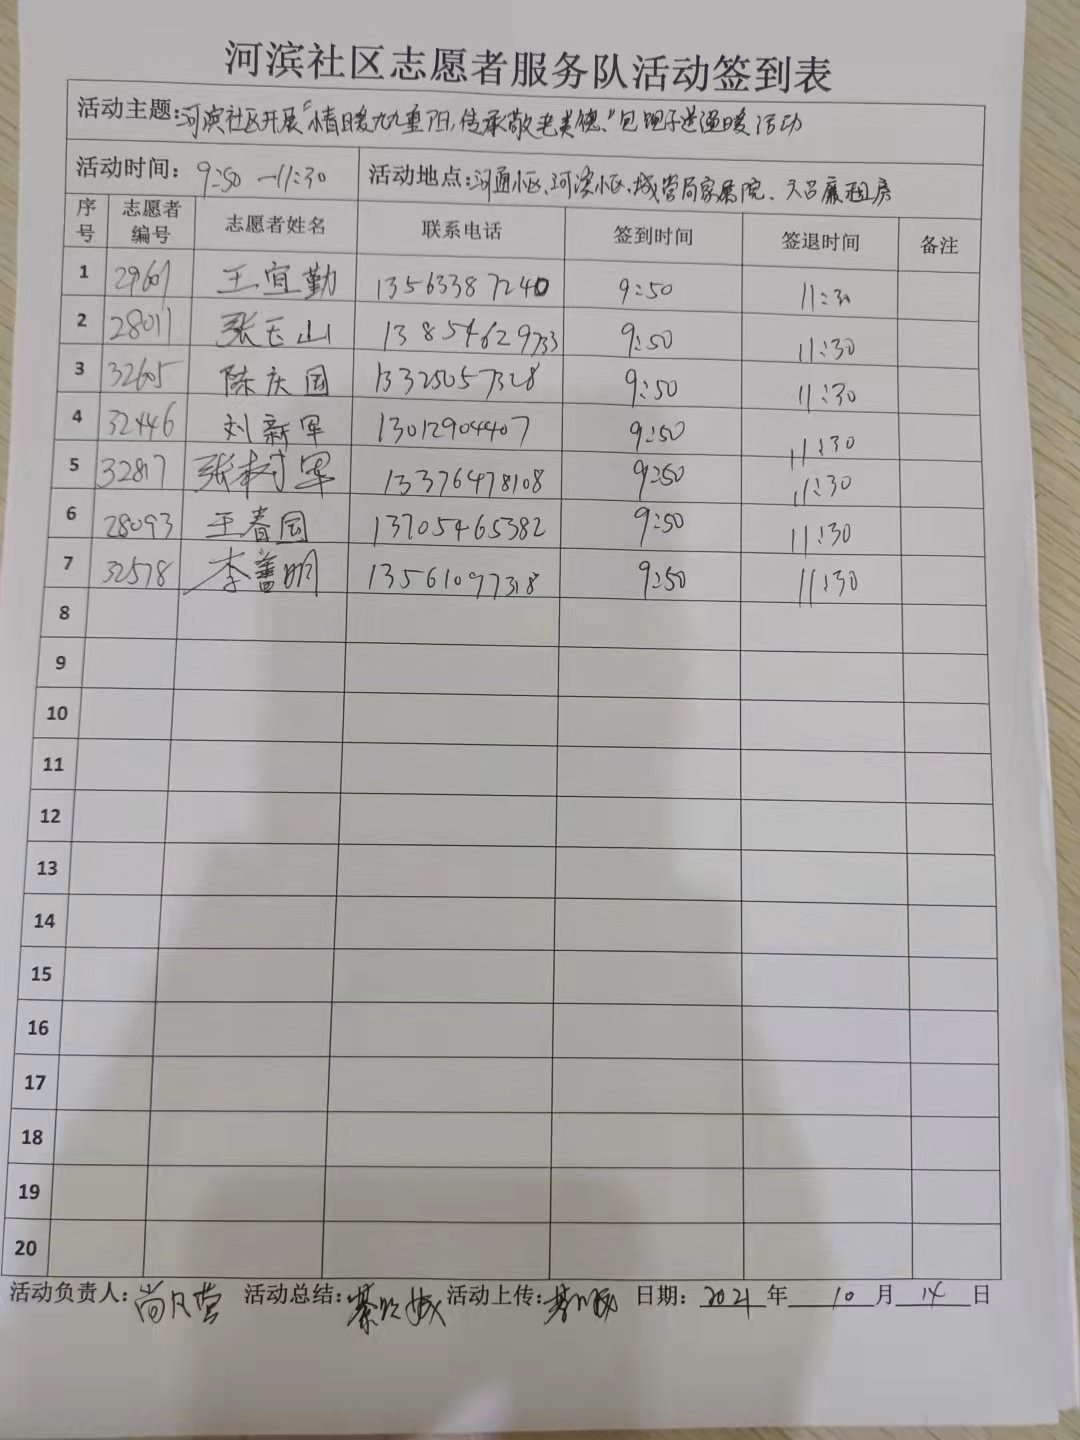 河滨社区志愿者服务队活动签到表
活动主题:河滨社区开展“情暖九九重阳,传承敬老美德”包饺子送温暖活动
活动时间: 9:50 —11:30 活动地点:河通小区、河滨小区、城管局家属院、天吕廉租房
序号 志愿者编号 志愿者姓名 联系电话 签到时间 签退时间 备注
1 29607 王宜勤 13563387240 9:50 11:30
2 28017 张玉山 13854629733 9:50 11:30
3 32605 陈庆国 13325057328 9:50 11:30
4 32446 刘新军 13012904407 9:50 11:30
5 32817 张树军 13376478108 9:50 11:30
6 28093 王春国 13705465382 9:50 11:30
7 32578 李善明 13561097318 9:50 11:30
8
9
10
11
12
13
14
15
16
17
18
19
20
活动负责人: 尚凡莹 活动总结: 活动上传: 日期: 2021 年 10 月 14 日